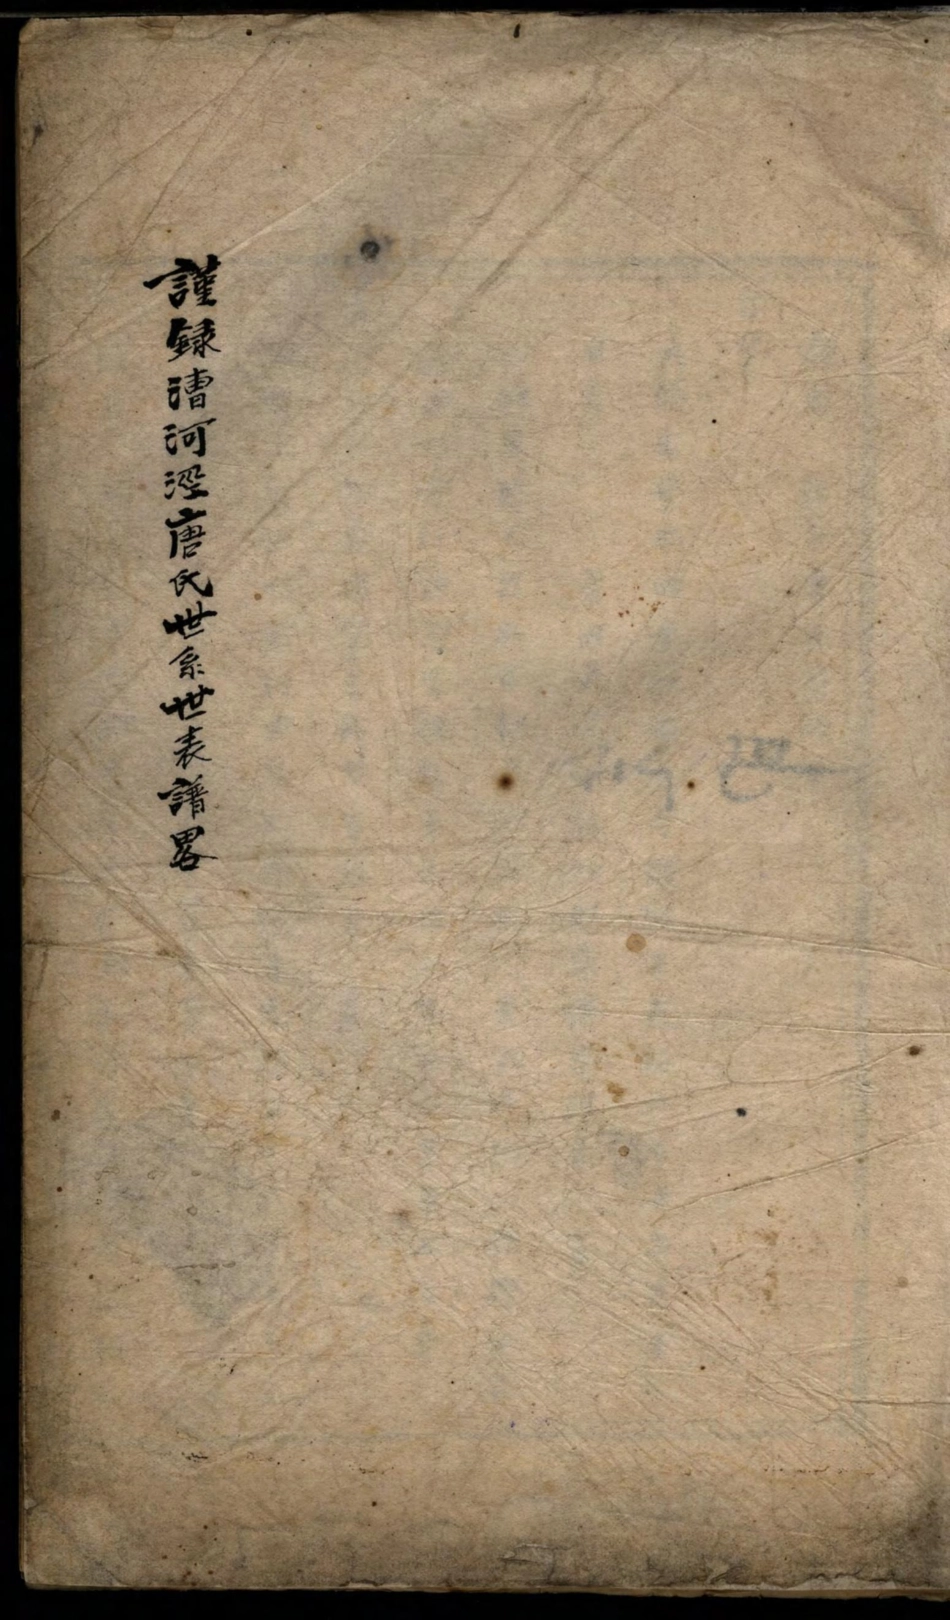 謹録漕河涇唐氏世系世表譜畧